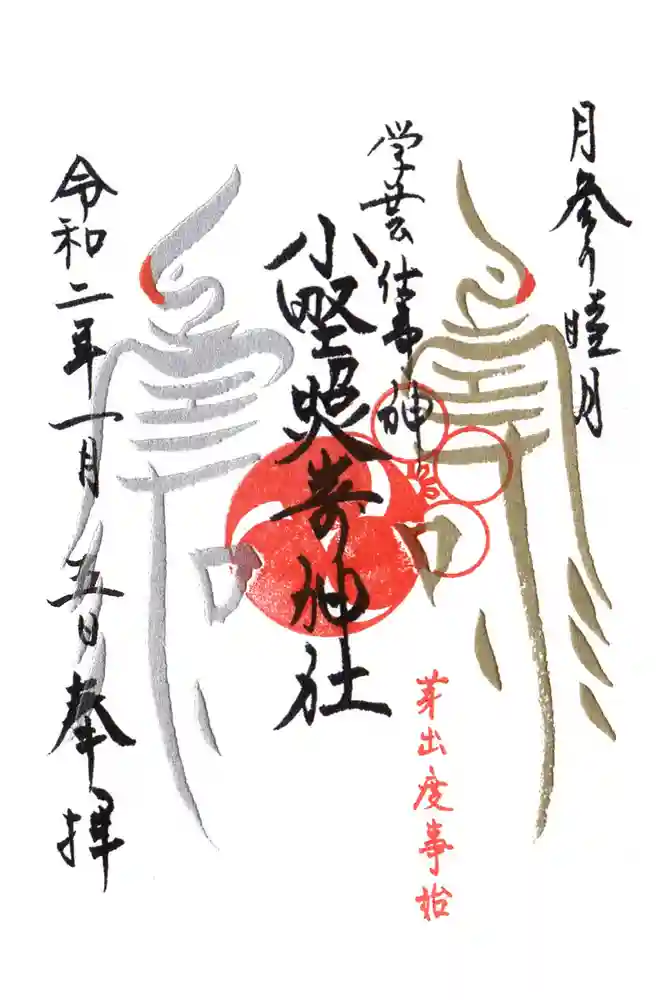 月参り睦月
学芸仕事ノ神
小野照崎神社
芽出度事始
令和二年一月五日奉拝